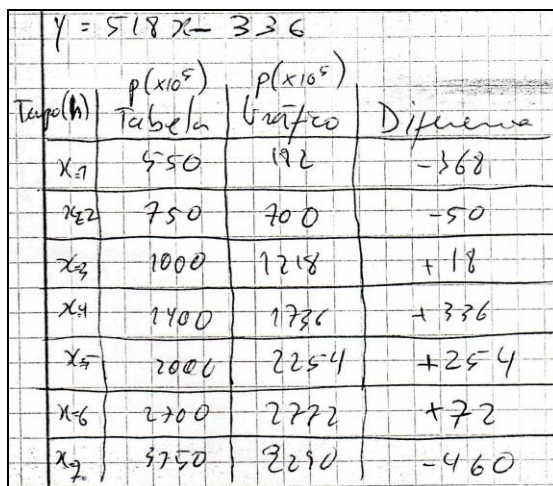 y = 518x - 336
p(x10⁵) p(x10⁵)
Tempo(h) Tabela Gráfico Diferença
x=1 550 182 -368
x=2 750 700 -50
x=3 1000 1218 +18
x=4 1400 1736 +336
x=5 2000 2254 +254
x=6 2700 2772 +72
x=7 3750 3290 -460